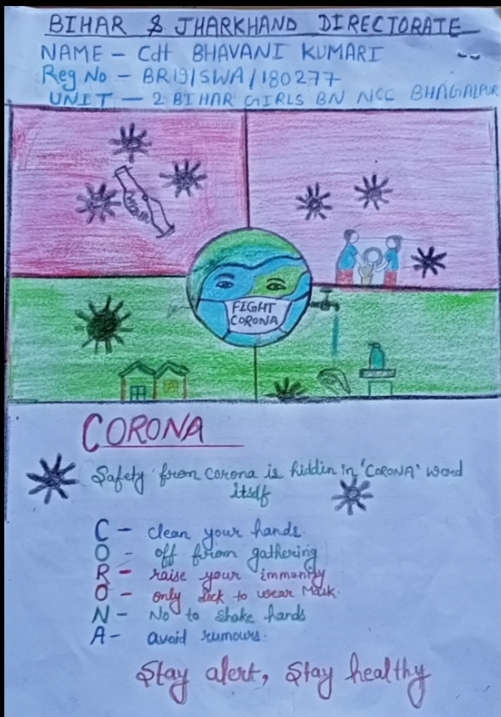 BIHAR & JHARKHAND DIRECTORATE
NAME - Cdt BHAVANI KUMARI
Reg No - BR19/SWA/180277
UNIT - 2 BIHAR GIRLS BN NCC BHAGALPUR
FIGHT
CORONA
CORONA
Safety from corona is hidden in 'CORONA' word
itself
C - clean your hands.
O - off from gathering
R - raise your immunity
O - only to wear Mask.
N - No to shake hands
A - avoid rumours.
Stay alert, Stay healthy